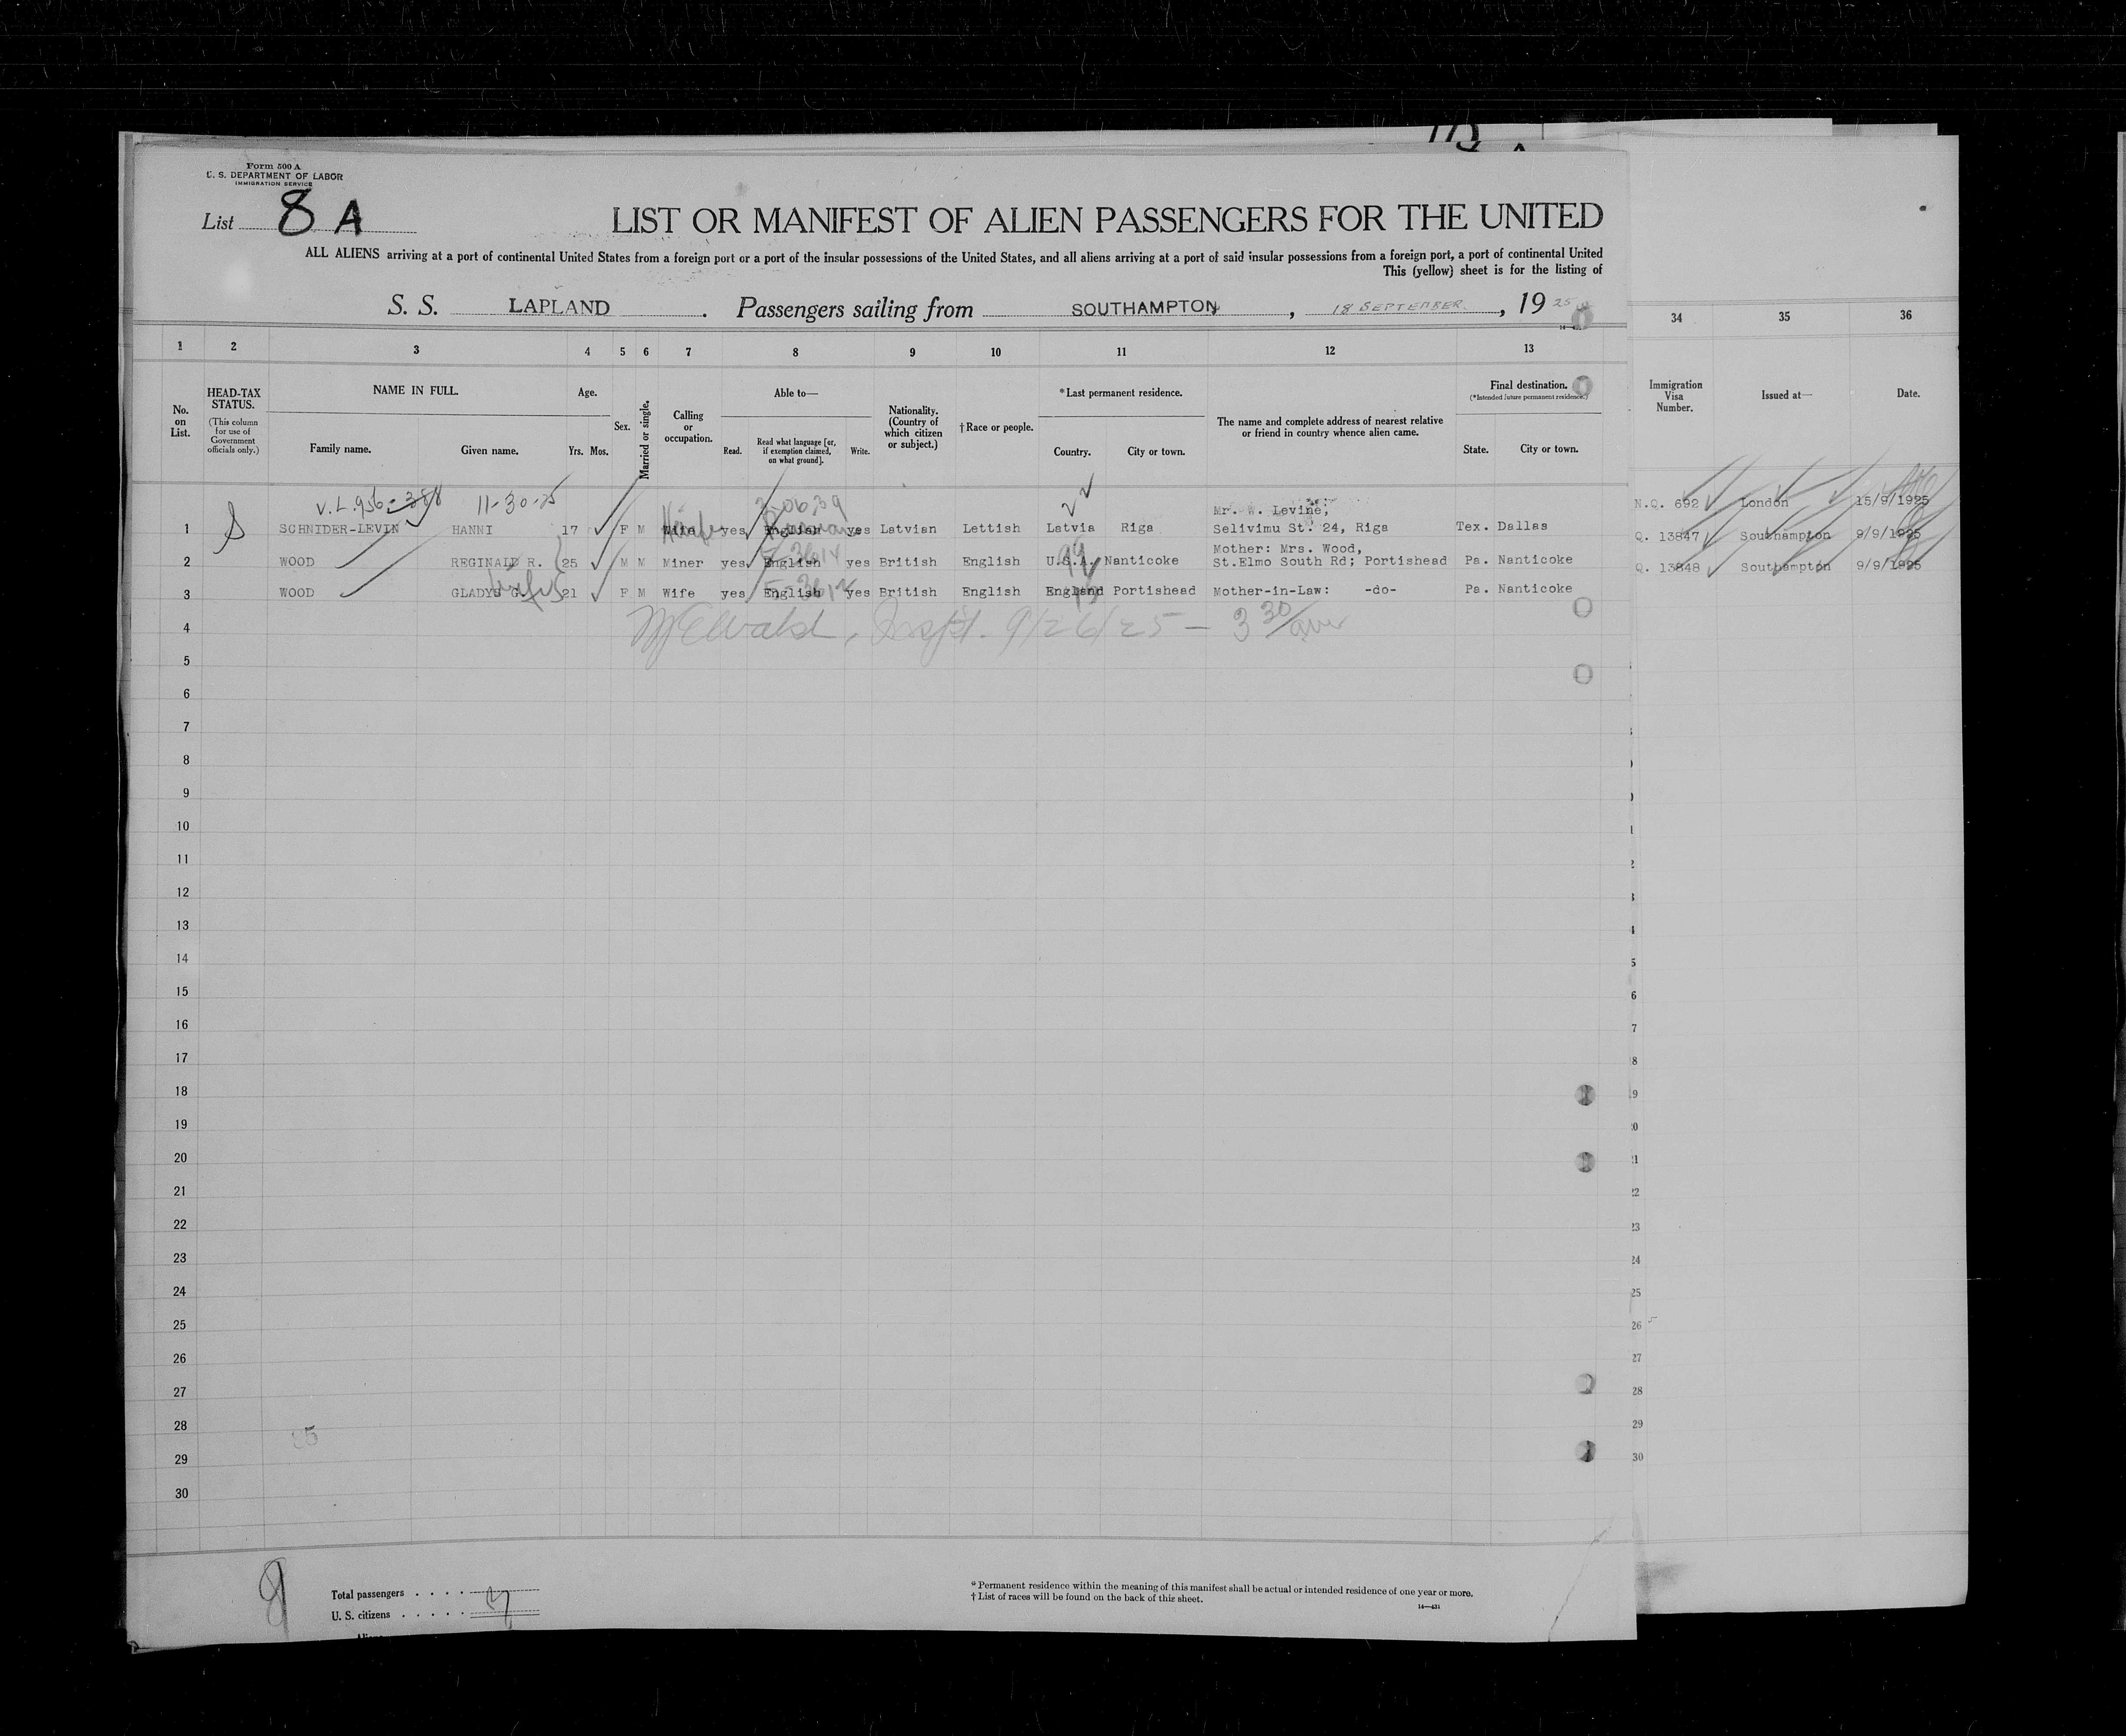 Form 500 A
U. S. DEPARTMENT OF LABOR
IMMIGRATION SERVICE
List 8 A
LIST OR MANIFEST OF ALIEN PASSENGERS FOR THE UNITED
ALL ALIENS arriving at a port of continental United States from a foreign port or a port of the insular possessions of the United States, and all aliens arriving at a port of said insular possessions from a foreign port, a port of continental United
This (yellow) sheet is for the listing of
S. S. LAPLAND . Passengers sailing from SOUTHAMPTON , 18 SEPTEMBER , 19 25
1 2 3 4 5 6 7 8 9 10 11 12 13 34 35 36
No. on List.
HEAD-TAX STATUS.
(This column for use of Government officials only.)
NAME IN FULL.
Family name. Given name.
Age.
Yrs. Mos.
Sex.
Married or single.
Calling or occupation.
Able to—
Read. Read what language [or, if exemption claimed, on what ground]. Write.
Nationality. (Country of which citizen or subject.)
†Race or people.
*Last permanent residence.
Country. City or town.
The name and complete address of nearest relative or friend in country whence alien came.
Final destination.
(*Intended future permanent residence.)
State. City or town.
Immigration Visa Number.
Issued at—
Date.
V.L. 956-388 11-30-25
Mr. W. Levine;
1 S SCHNIDER-LEVIN HANNI 17 F M Wife yes English yes Latvian Lettish Latvia Riga Selivimu St. 24, Riga Tex. Dallas N.Q. 692 London 15/9/1925
Mother: Mrs. Wood,
2 WOOD REGINALD R. 25 M M Miner yes English yes British English U.S.A. Nanticoke St.Elmo South Rd; Portishead Pa. Nanticoke Q. 13847 Southampton 9/9/1925
3 WOOD GLADYS G. 21 F M Wife yes English yes British English England Portishead Mother-in-Law: -do- Pa. Nanticoke Q. 13848 Southampton 9/9/1925
4 9/26/25 - 3 30/
5
6
7
8
9
10
11
12
13
14
15
16
17
18
19
20
21
22
23
24
25
26
27
28
29
30
Total passengers . . . .
U. S. citizens . . . . .
* Permanent residence within the meaning of this manifest shall be actual or intended residence of one year or more.
† List of races will be found on the back of this sheet.
14—431